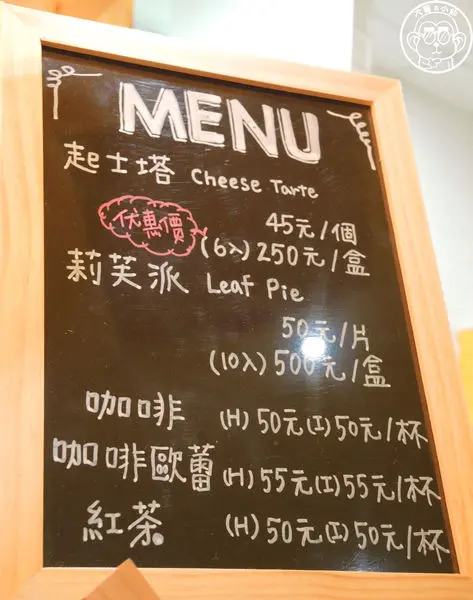 大手&小手
MENU
起士塔 Cheese Tarte
45元/個
优惠價
(6入) 250元/盒
莉芙派 Leaf Pie
50元/片
(10入) 500元/盒
咖啡 (H) 50元 (I) 50元/杯
咖啡歐蕾 (H) 55元 (I) 55元/杯
紅茶 (H) 50元 (I) 50元/杯